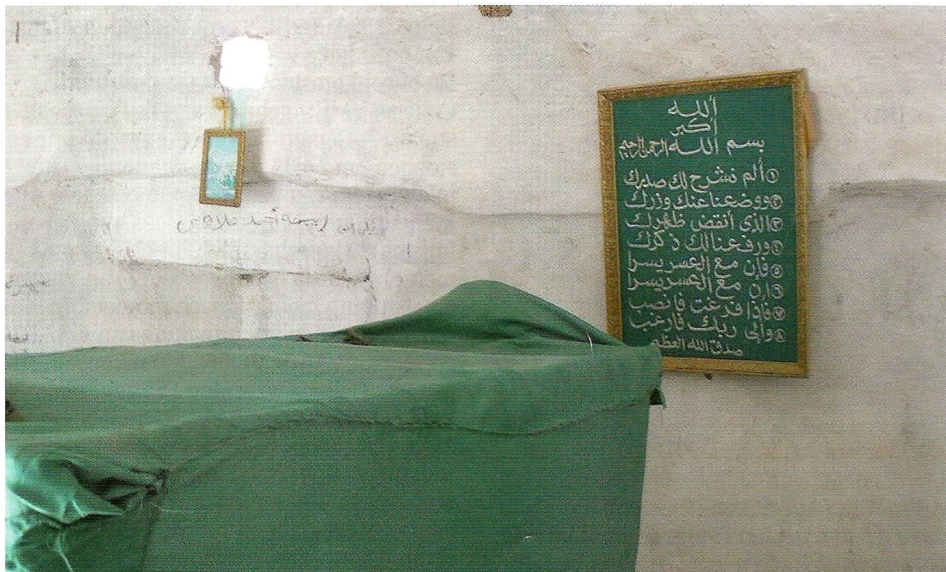 الله
أكبر
بسم الله الرحمن الرحيم
١ ألم نشرح لك صدرك
٢ ووضعنا عنك وزرك
٣ الذى أنقض ظهرك
٤ ورفعنا لك ذكرك
٥ فإن مع العسر يسرا
٦ إن مع العسر يسرا
٧ فإذا فرغت فانصب
٨ وإلى ربك فارغب
صدق الله العظيم